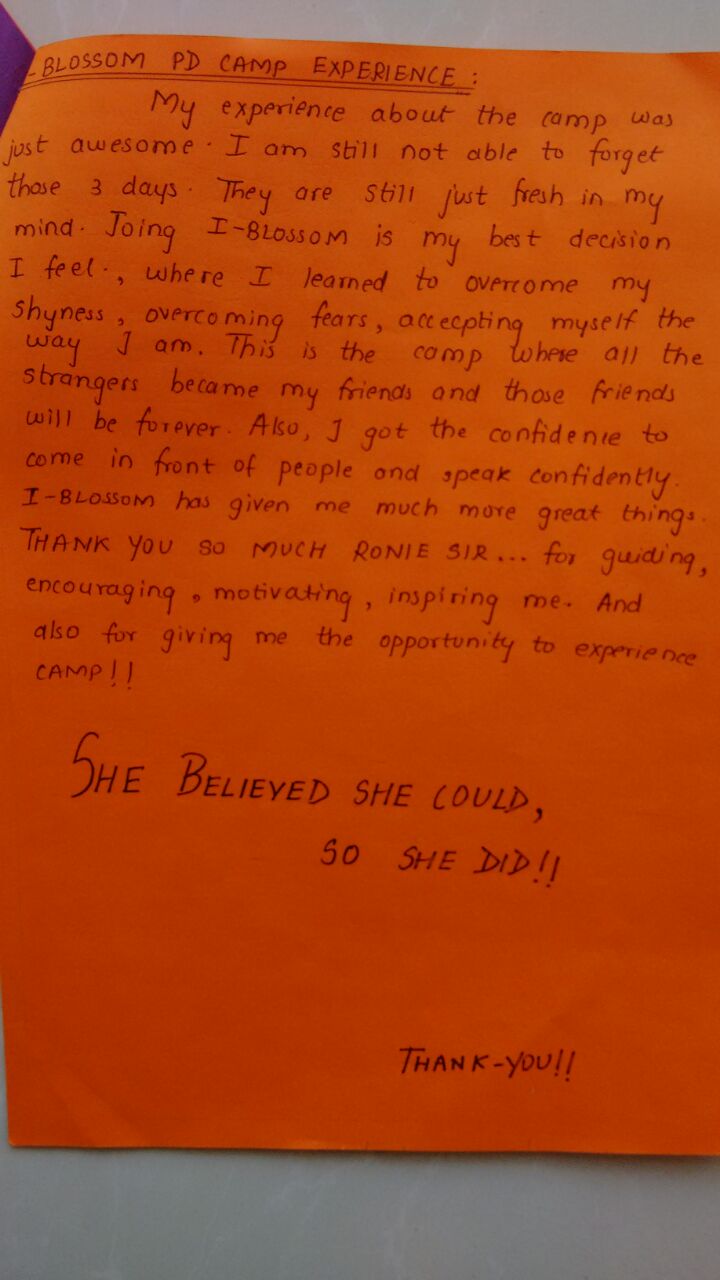 -BLOSSOM PD CAMP EXPERIENCE :
My experience about the camp was
just awesome. I am still not able to forget
those 3 days. They are still just fresh in my
mind. Joing I-BLOSSOM is my best decision
I feel., where I learned to overcome my
shyness, overcoming fears, accecpting myself the
way I am. This is the camp where all the
strangers became my friends and those friends
will be forever. Also, I got the confidence to
come in front of people and speak confidently.
I-BLOSSOM has given me much more great things.
THANK YOU SO MUCH RONIE SIR... for guiding,
encouraging, motivating, inspiring me. And
also for giving me the opportunity to experience
CAMP!!
SHE BELIEVED SHE COULD,
SO SHE DID!!
THANK-YOU!!